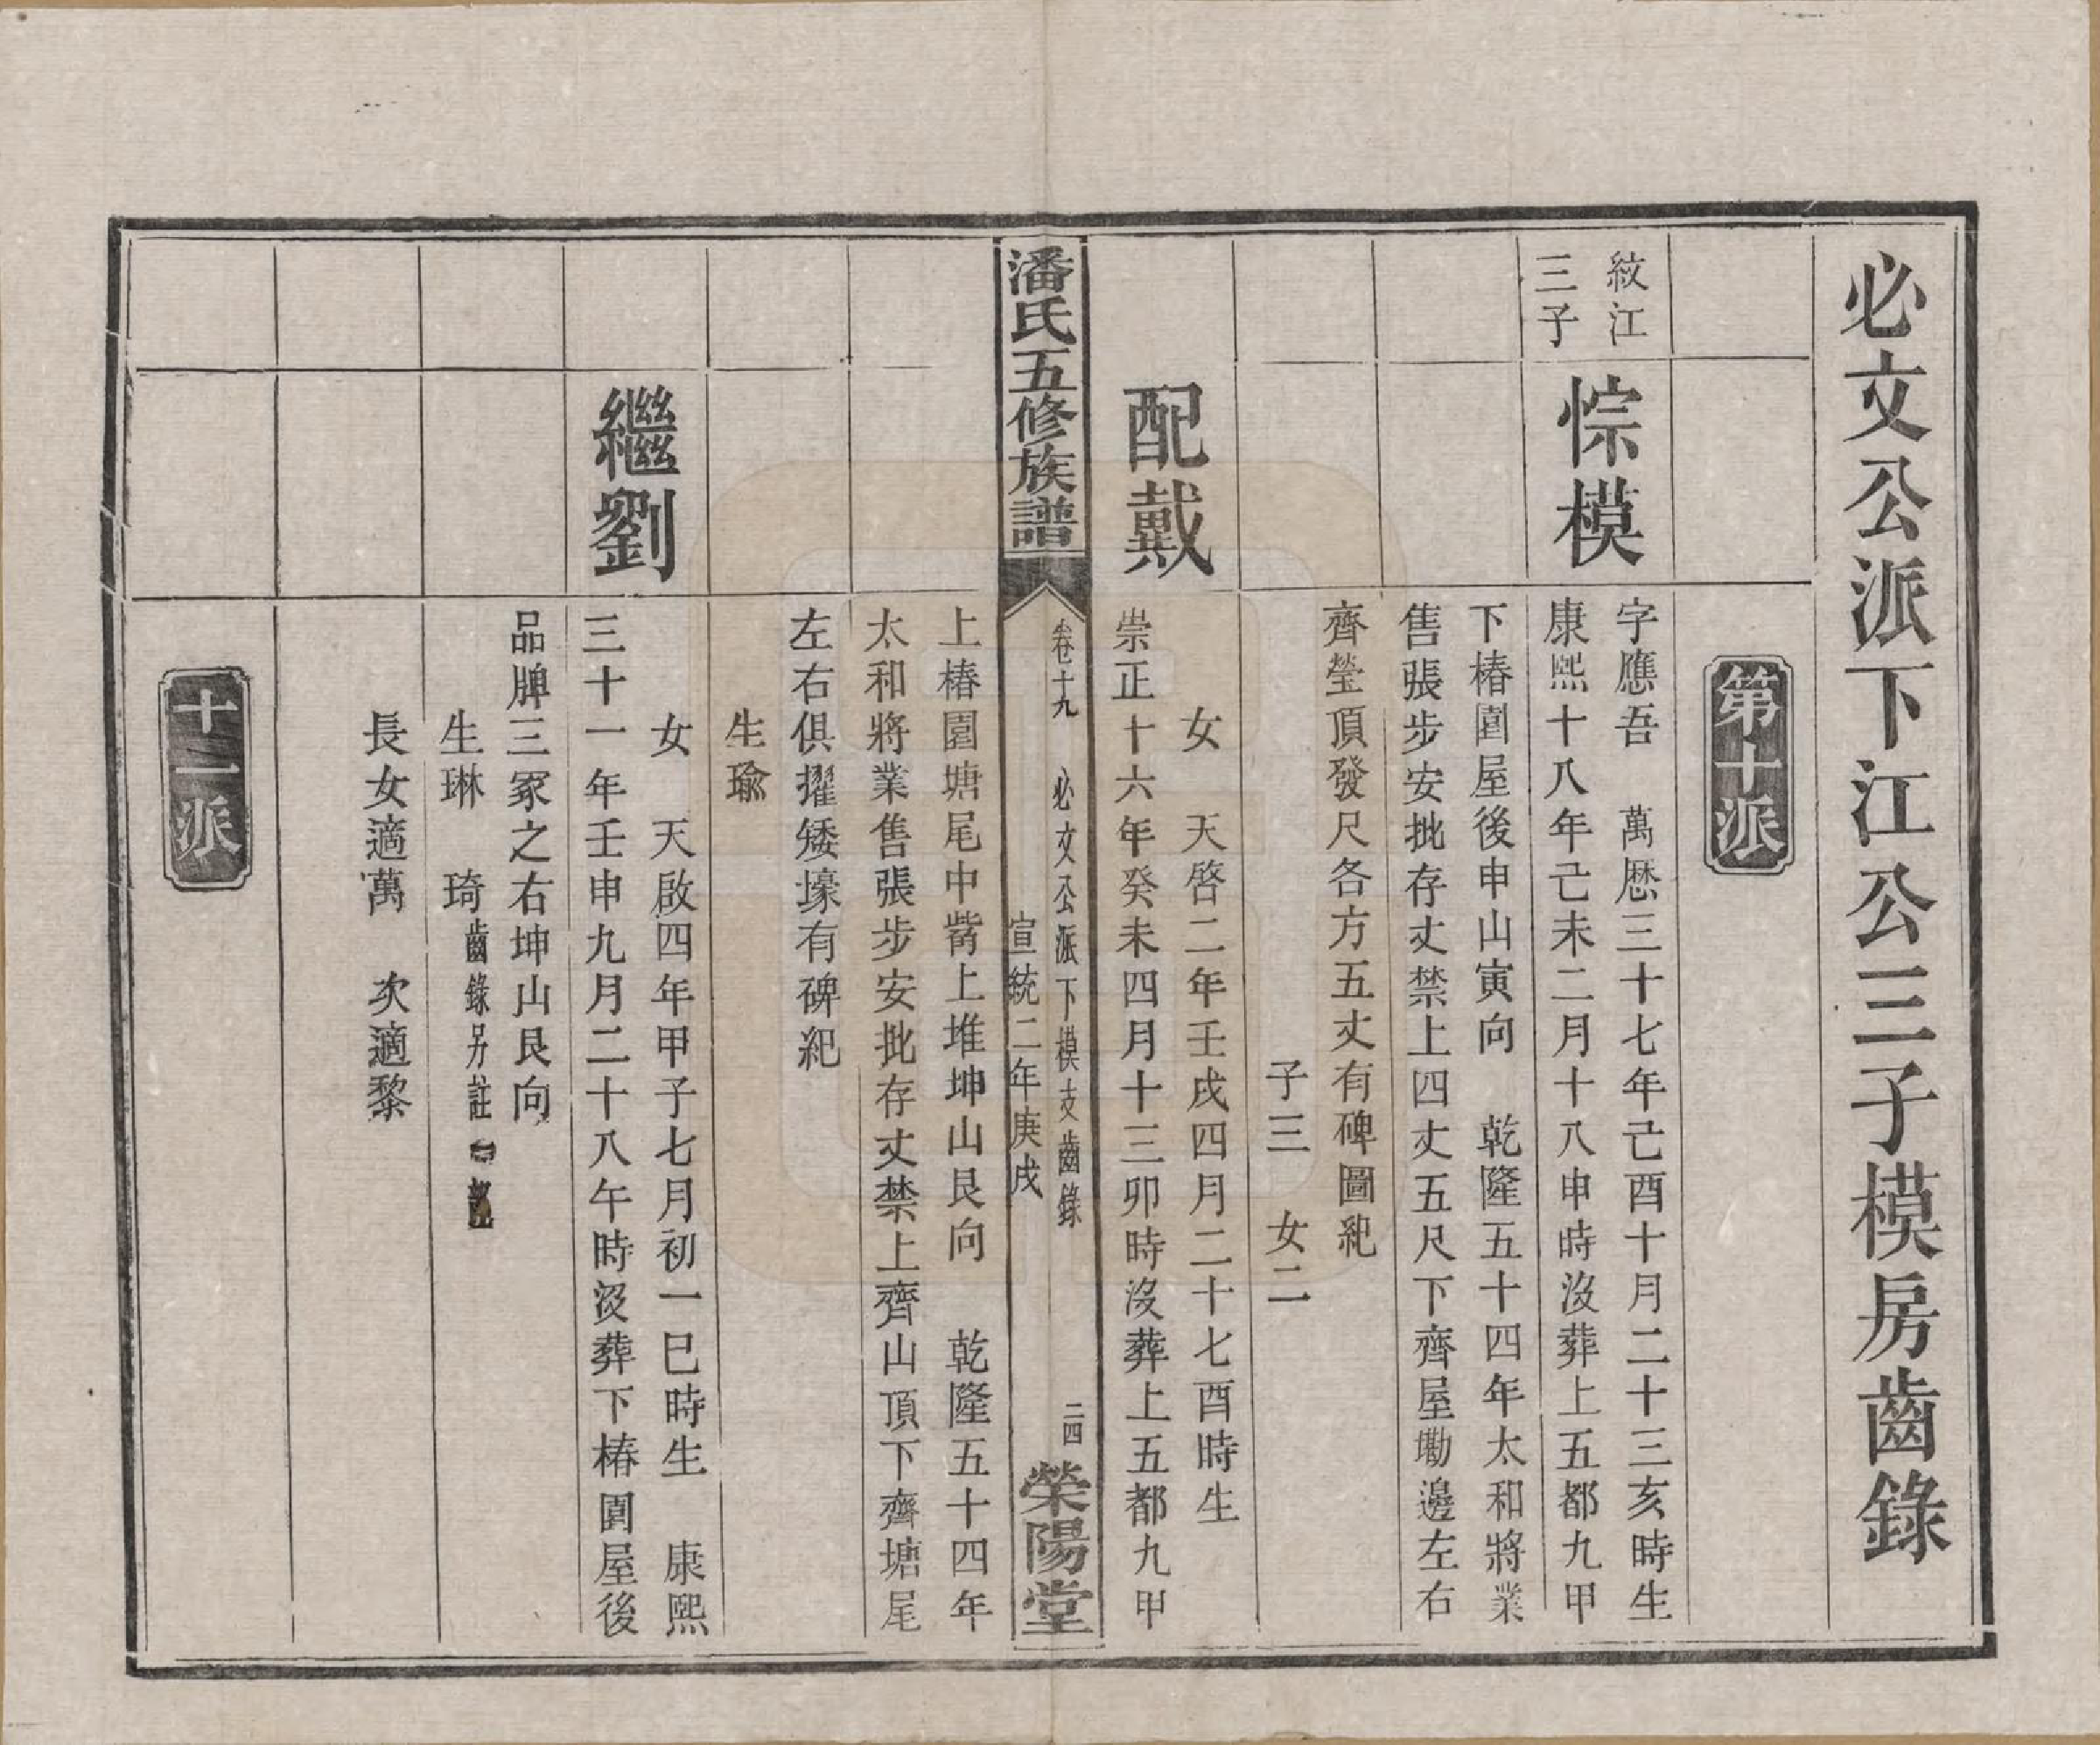 必文公派下江公三子模房齒錄
第十派
紋江
三子
悰模
字應吾　萬歷三十七年己酉十月二十三亥時生
康熙十八年己未二月十八申時沒葬上五都九甲
下椿園屋後申山寅向　乾隆五十四年太和將業
售張步安批存丈禁上四丈五尺下齊屋墈邊左右
齊塋頂發尺各方五丈有碑圖紀
子三　女二
配戴
女　天啓二年壬戌四月二十七酉時生
崇正十六年癸未四月十三卯時沒葬上五都九甲
潘氏五修族譜
卷十九　必文公派下模支齒錄
宣統二年庚戌
二四
榮陽堂
上椿園塘尾中觜上堆坤山艮向　乾隆五十四年
太和將業售張步安批存丈禁上齊山頂下齊塘尾
左右俱擢矮壕有碑紀
生瑜
繼劉
女　天啟四年甲子七月初一巳時生　康熙
三十一年壬申九月二十八午時沒葬下椿園屋後
品牌三冢之右坤山艮向
生琳　琦齒錄另註
長女適萬　次適黎
十一派